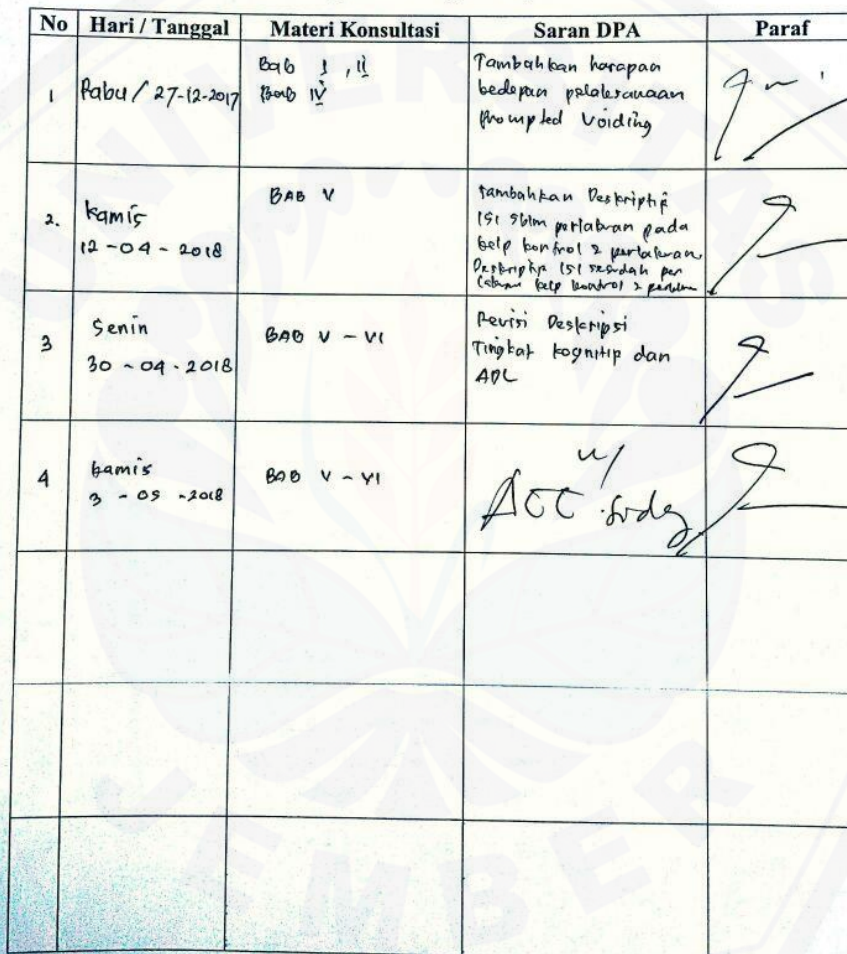 No Hari / Tanggal Materi Konsultasi Saran DPA Paraf
1 Rabu / 27-12-2017
Bab I , II
Bab IV
Tambahkan harapan
kedepan pelaksanaan
Prompted Voiding
2. Kamis
12-04-2018
BAB V
Tambahkan Deskriptif
ISI sblm perlakuan pada
kelp kontrol & perlakuan
Deskriptif ISI sesudah per
lakuan kelp kontrol &
3 Senin
30-04-2018
BAB V - VI
Revisi Deskripsi
Tingkat kognitip dan
ADL
4 Kamis
3 - 05 - 2018
BAB V - VI
ACC u/
UNIVERSITAS
JEMBER